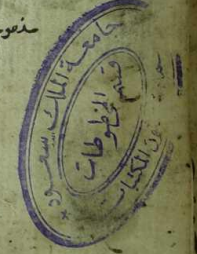 جامعة الملك سعود
قسم
المخطوطات
المكتبات